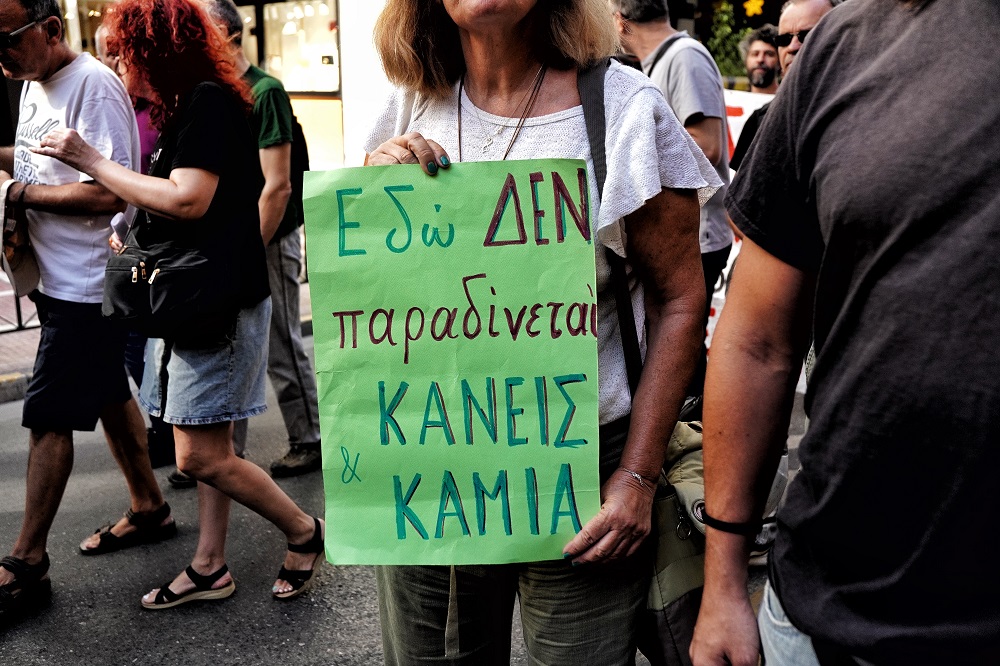 Εδώ ΔΕΝ
παραδίνεται
ΚΑΝΕΙΣ
& ΚΑΜΙΑ